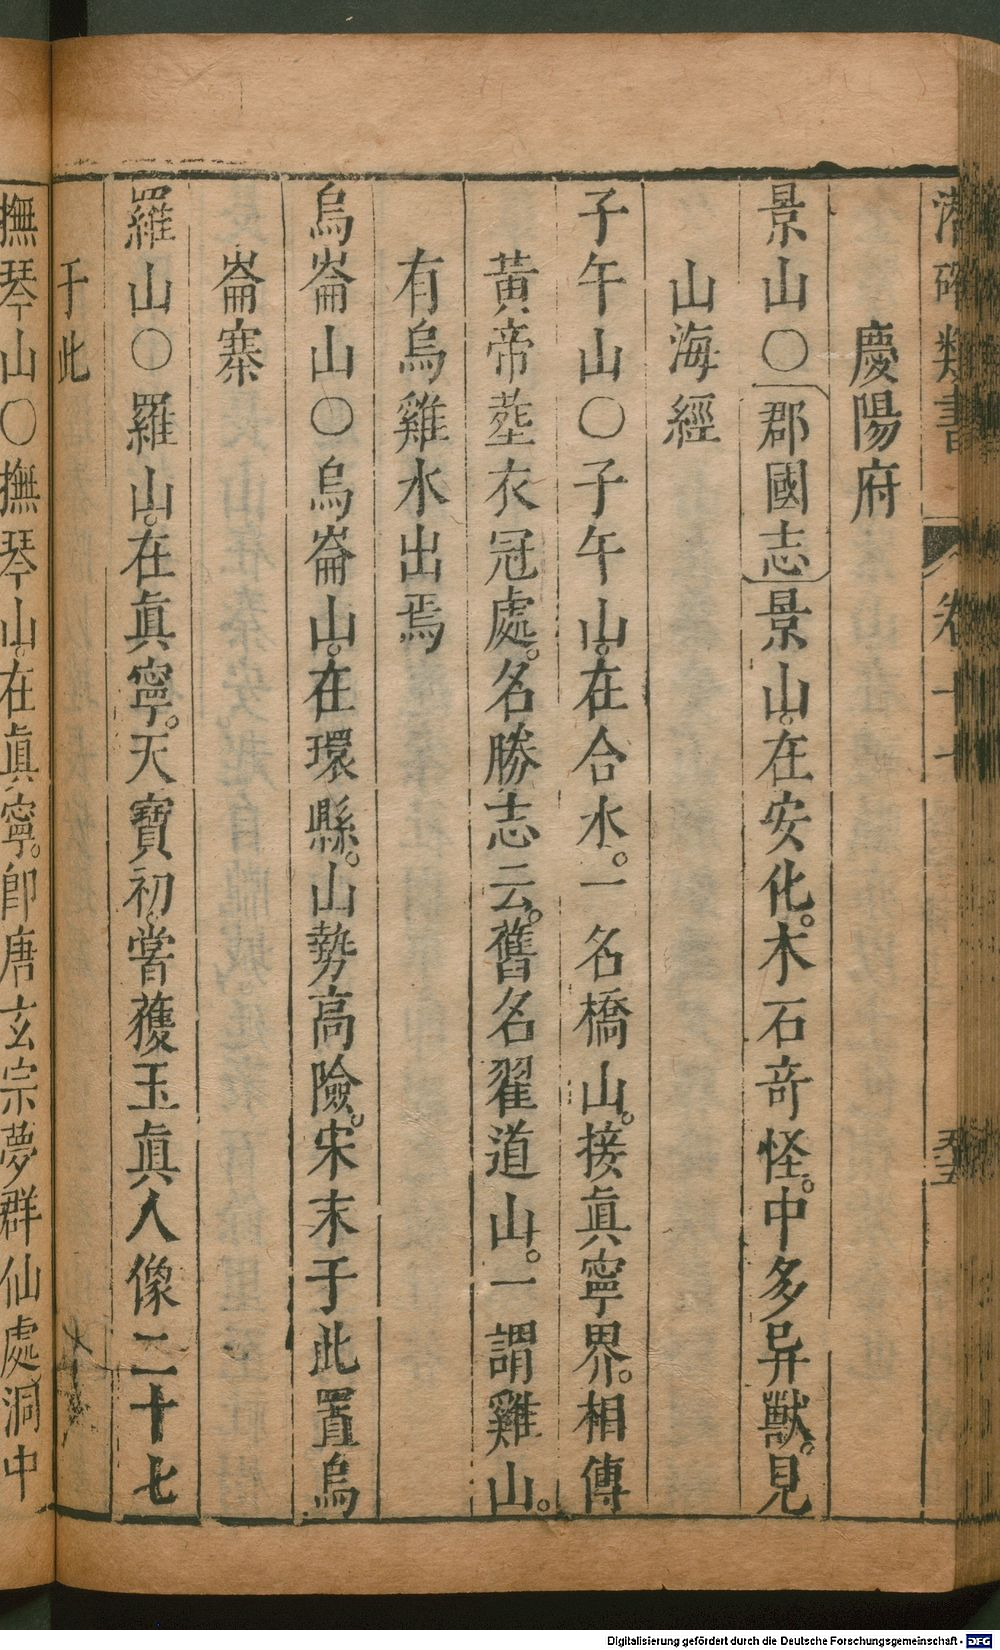 潛確類書 卷
慶陽府
景山〇郡國志景山。在安化。木石奇怪。中多异獸。見
山海經
子午山〇子午山。在合水。一名橋山。接眞寧界。相傳
黃帝塟衣冠處。名勝志云。舊名翟道山。一謂雞山。
有烏雞水出焉
烏崙山〇烏崙山。在環縣。山勢高險。宋末于此置烏
崙寨
羅山〇羅山。在眞寧。天寶初。嘗獲玉眞人像二十七
于此
撫琴山〇撫琴山。在眞寧。卽唐玄宗夢群仙處洞中
Digitalisierung gefördert durch die Deutsche Forschungsgemeinschaft - DFG